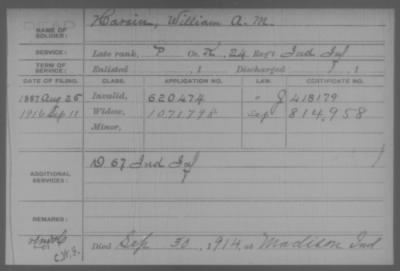 DEAD
NAME OF SOLDIER: William A. M.
SERVICE: Late rank, P Co. K, 24 Reg't Ind Inf
TERM OF SERVICE: Enlisted , 1 Discharged , 1
DATE OF FILING. CLASS. APPLICATION NO. LAW. CERTIFICATE NO.
1887 Aug 25 Invalid, 620474 " G 418179
1916 Sep 11 Widow, 1071798 Sep 814,958
Minor,
ADDITIONAL SERVICES: D 67 Ind Inf
REMARKS:
Died Sep 30, 1914, at Madison Ind